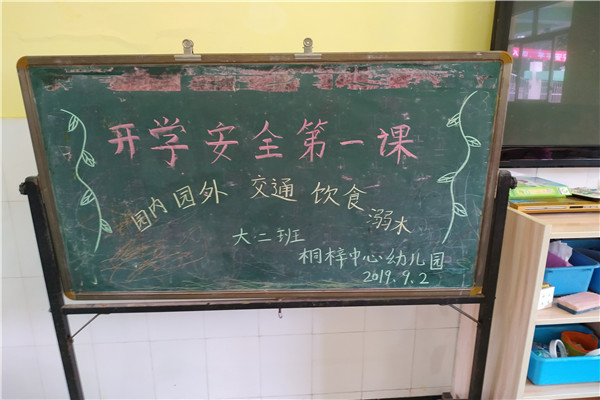 开学安全第一课
园内园外 交通 饮食 溺水
大二班
桐梓中心幼儿园
2019.9.2